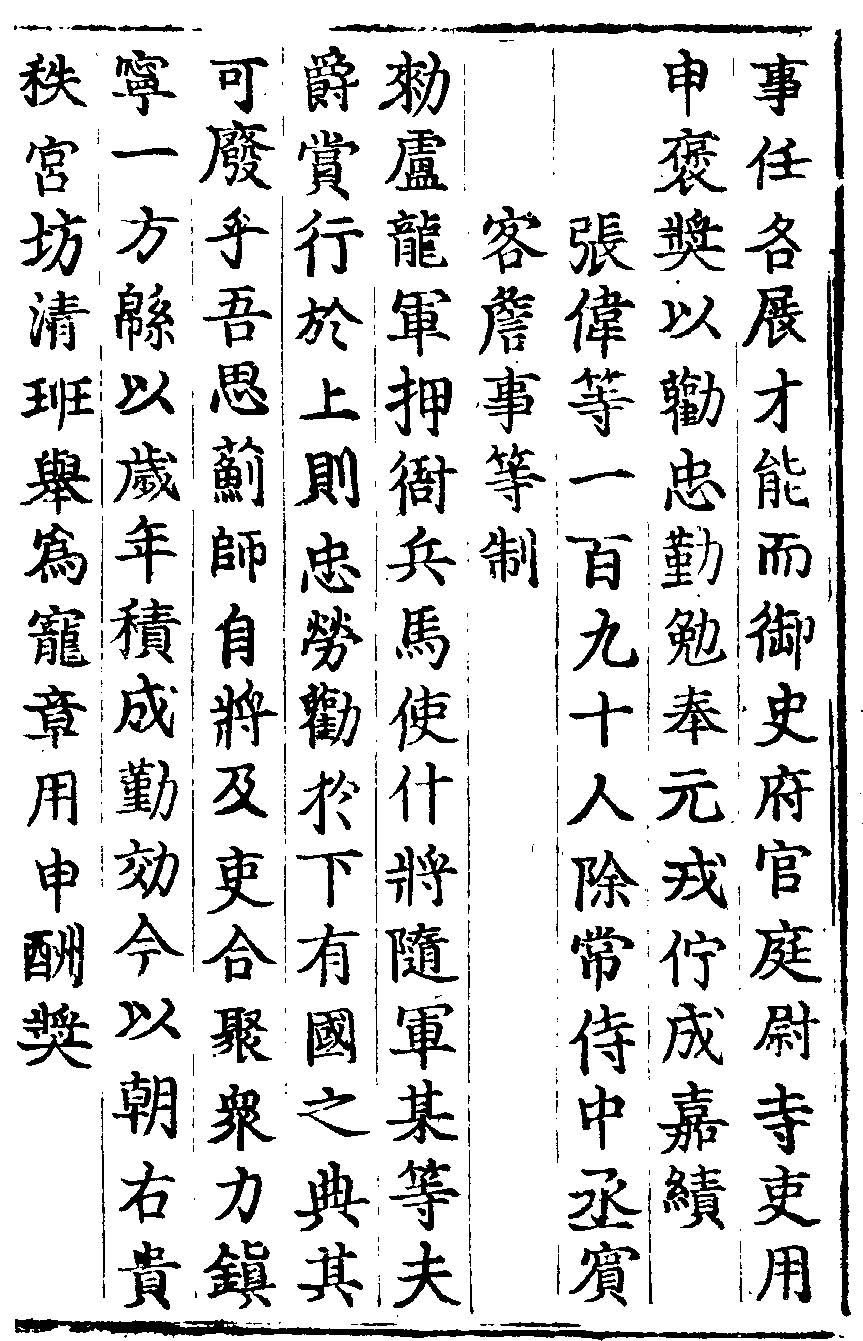 事任各展才能而御史府官庭尉寺吏用
申褒奬以勸忠勤勉奉元戎佇成嘉績
張偉等一百九十人除常侍中丞賔
客詹事等制
勑盧龍軍押衙兵馬使什將隨軍某等夫
爵賞行於上則忠勞勸於下有國之典其
可廢乎吾思薊師自將及吏合聚衆力鎭
寧一方緜以歲年積成勤効今以朝右貴
秩宮坊清班舉爲寵章用申酬奬